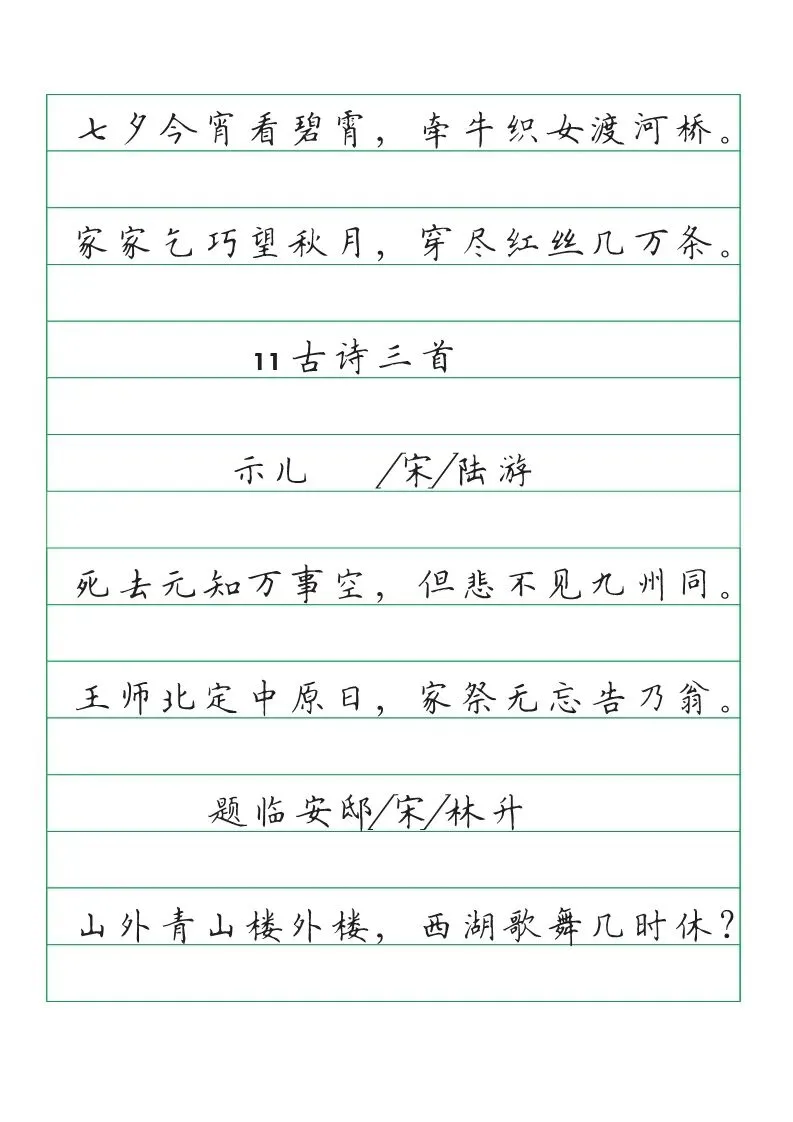 七夕今宵看碧霄，牵牛织女渡河桥。
家家乞巧望秋月，穿尽红丝几万条。
11 古诗三首
示儿 /宋/陆游
死去元知万事空，但悲不见九州同。
王师北定中原日，家祭无忘告乃翁。
题临安邸/宋/林升
山外青山楼外楼，西湖歌舞几时休？